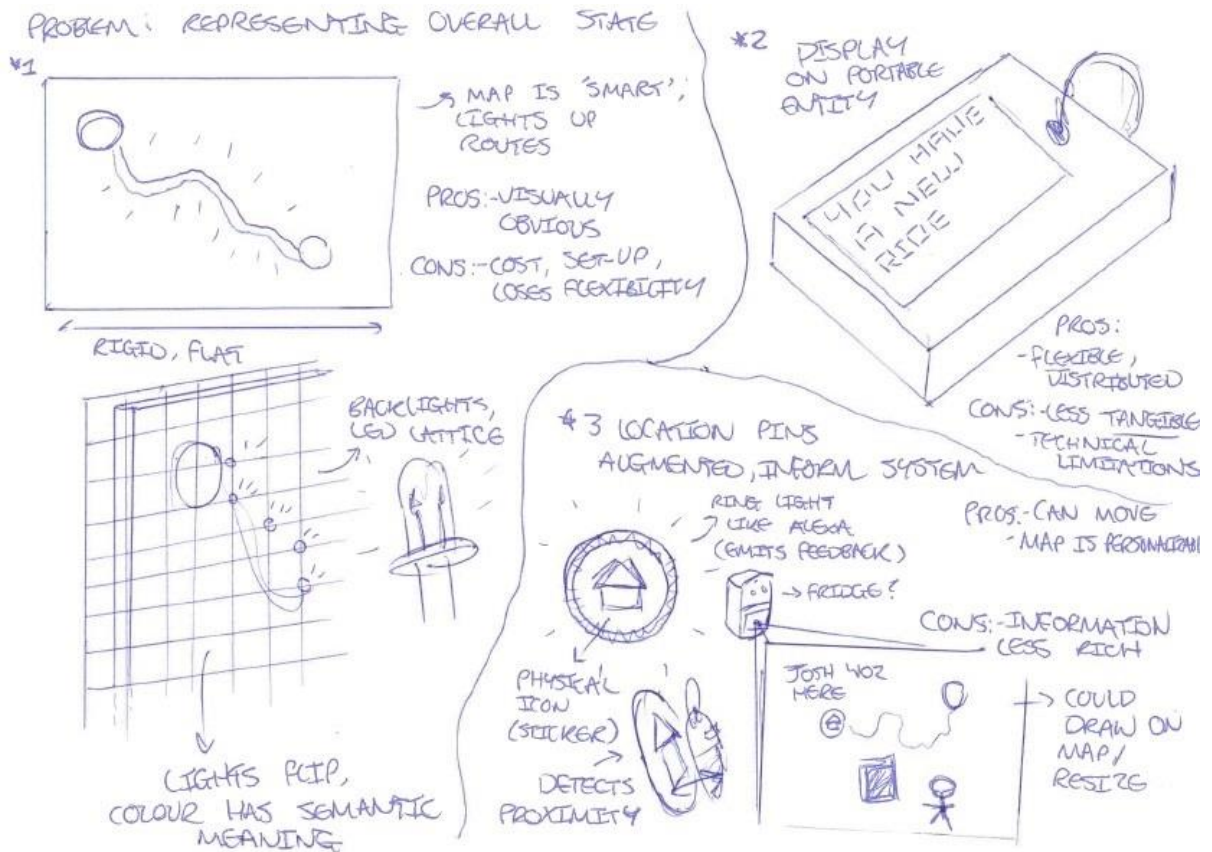 PROBLEM: REPRESENTING OVERALL STATE
*1
MAP IS 'SMART',
LIGHTS UP
ROUTES
PROS:-VISUALLY
OBVIOUS
CONS:-COST, SET-UP,
LOSES FLEXIBILITY
RIGID, FLAT
BACKLIGHTS,
LED LATTICE
LIGHTS FLIP,
COLOUR HAS SEMANTIC
MEANING
*2 DISPLAY
ON PORTABLE
ENTITY
YOU HAVE
A NEW
RIDE
PROS:
-FLEXIBLE,
DISTRIBUTED
CONS:-LESS TANGIBLE
-TECHNICAL
LIMITATIONS
*3 LOCATION PINS
AUGMENTED, INFORM SYSTEM
RING LIGHT
LIKE ALEXA
(EMITS FEEDBACK)
PROS:-CAN MOVE
-MAP IS PERSONALISABL
FRIDGE?
CONS:-INFORMATION
LESS RICH
PHYSICAL
ICON
(STICKER)
DETECTS
PROXIMITY
JOSH WOZ
HERE
COULD
DRAW ON
MAP/
RESIZE